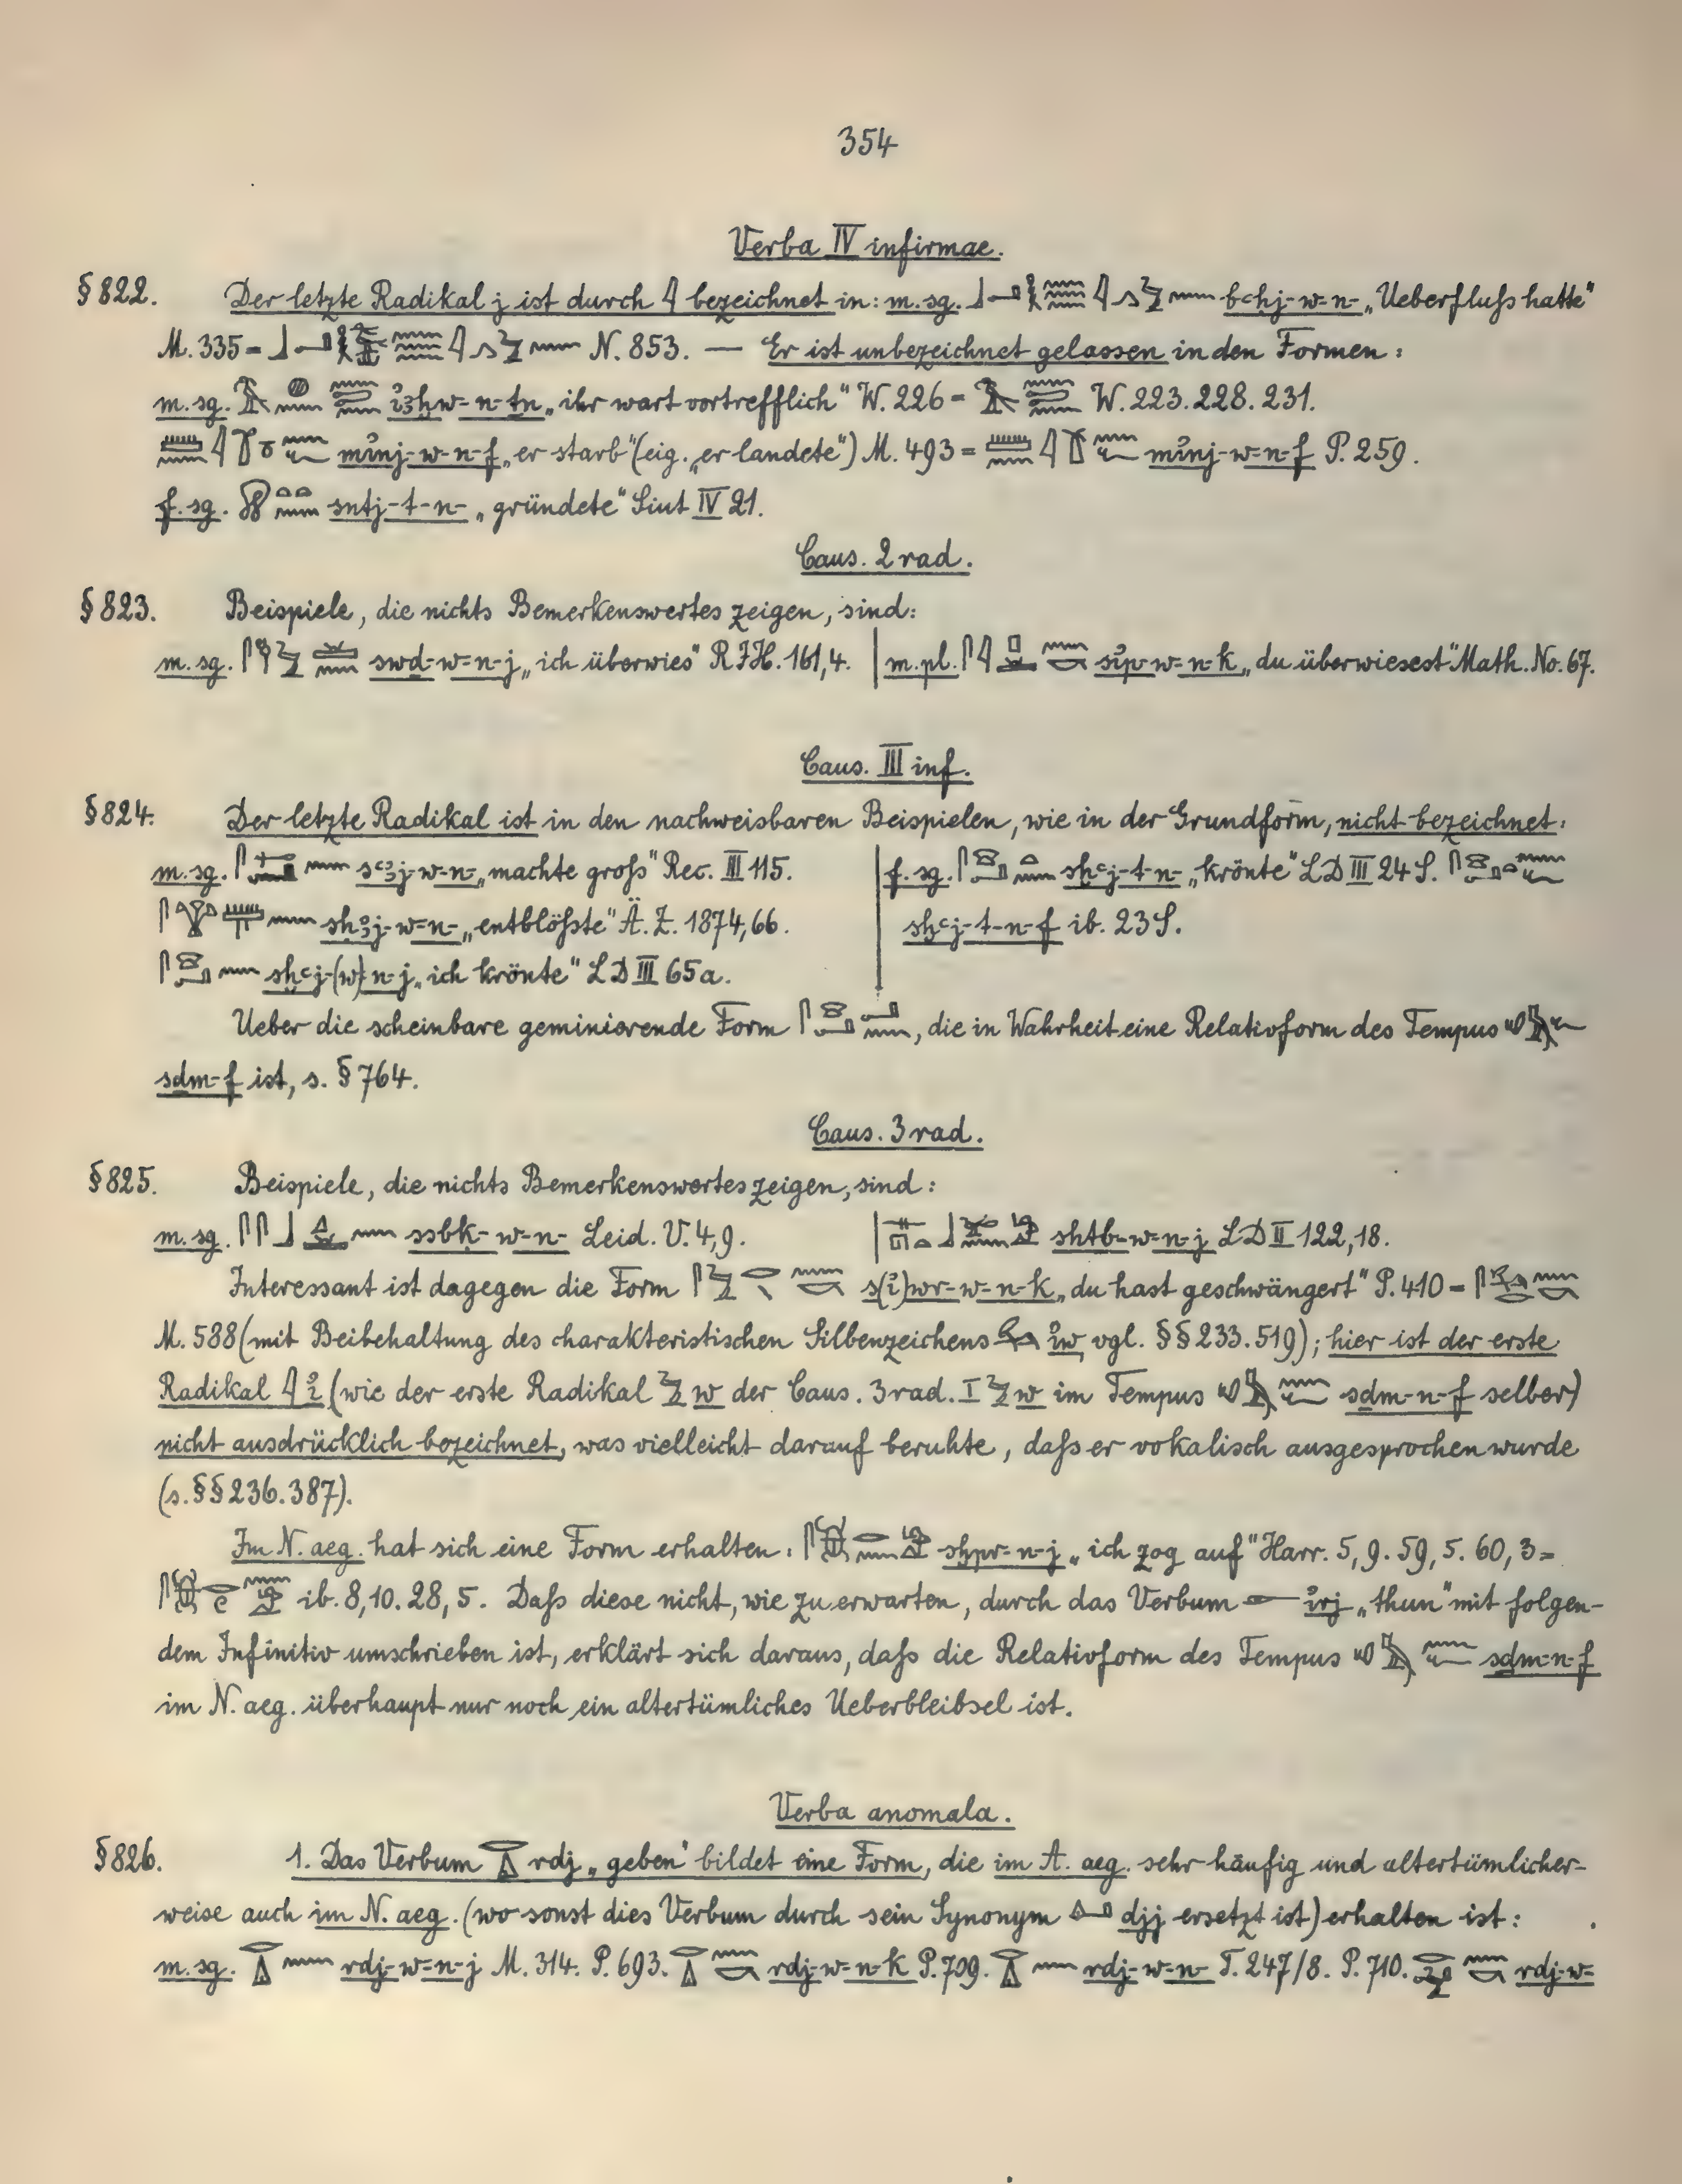 354
Verba IV infirmae.
§ 822. Der letzte Radikal j ist durch 𓇋 bezeichnet in: m. sg. bꜥḥj-w-n- „Ueberfluſs hatte"
M. 335 = N. 853. — Er ist unbezeichnet gelassen in den Formen:
m. sg. i͗ꜣḫw-n-ṯn „ihr wart vortrefflich" W. 226 = W. 223. 228. 231.
mi͗nj-w-n-f „er starb" (eig. „er landete") M. 493 = mi͗nj-w-n-f P. 259.
f. sg. sntj-t-n- „gründete" Siut IV 21.
Caus. 2 rad.
§ 823. Beispiele, die nichts Bemerkenswertes zeigen, sind:
m. sg. swḏ-w-n-j „ich überwies" R I H. 161,4. | m. pl. si͗p-w-n-k „du überwiesest" Math. No. 67.
Caus. III inf.
§ 824. Der letzte Radikal ist in den nachweisbaren Beispielen, wie in der Grundform, nicht bezeichnet:
m. sg. sꜥꜣj-w-n- „machte groſs" Rec. III 115. | f. sg. sḫꜥj-t-n- „krönte" LD III 24 S.
sḥꜣj-w-n- „entblöſste" Ä. Z. 1874, 66. | sḫꜥj-t-n-f ib. 23 S.
sḫꜥj-(w)-n-j „ich krönte" LD III 65a.
Ueber die scheinbare geminierende Form , die in Wahrheit eine Relativform des Tempus
sḏm-f ist, s. § 764.
Caus. 3 rad.
§ 825. Beispiele, die nichts Bemerkenswertes zeigen, sind:
m. sg. ssbḳ-w-n- Leid. V. 4,9. | sḥtb-w-n-j LD II 122,18.
Interessant ist dagegen die Form s(i͗)wr-w-n-k „du hast geschwängert" P. 410 =
M. 588 (mit Beibehaltung des charakteristischen Silbenzeichens i͗w vgl. §§ 233. 519); hier ist der erste
Radikal 𓇋 i͗ (wie der erste Radikal 𓅱 w der Caus. 3 rad. I 𓅱 w im Tempus sḏm-n-f selber)
nicht ausdrücklich bezeichnet, was vielleicht darauf beruhte, daſs er vokalisch ausgesprochen wurde
(s. §§ 236. 387).
Im N. aeg. hat sich eine Form erhalten: sḫpr-n-j „ich zog auf" Harr. 5, 9. 59, 5. 60, 3 =
ib. 8, 10. 28, 5. Daſs diese nicht, wie zu erwarten, durch das Verbum 𓁹 i͗rj „thun" mit folgen-
dem Infinitiv umschrieben ist, erklärt sich daraus, daſs die Relativform des Tempus sḏm-n-f
im N. aeg. überhaupt nur noch ein altertümliches Ueberbleibsel ist.
Verba anomala.
§ 826. 1. Das Verbum rdj „geben" bildet eine Form, die im A. aeg. sehr häufig und altertümlicher-
weise auch im N. aeg. (wo sonst dies Verbum durch sein Synonym djj ersetzt ist) erhalten ist:
m. sg. rdj-w-n-j M. 314. P. 693. rdj-w-n-k P. 709. rdj-w-n- T. 247/8. P. 710. rdj-w-